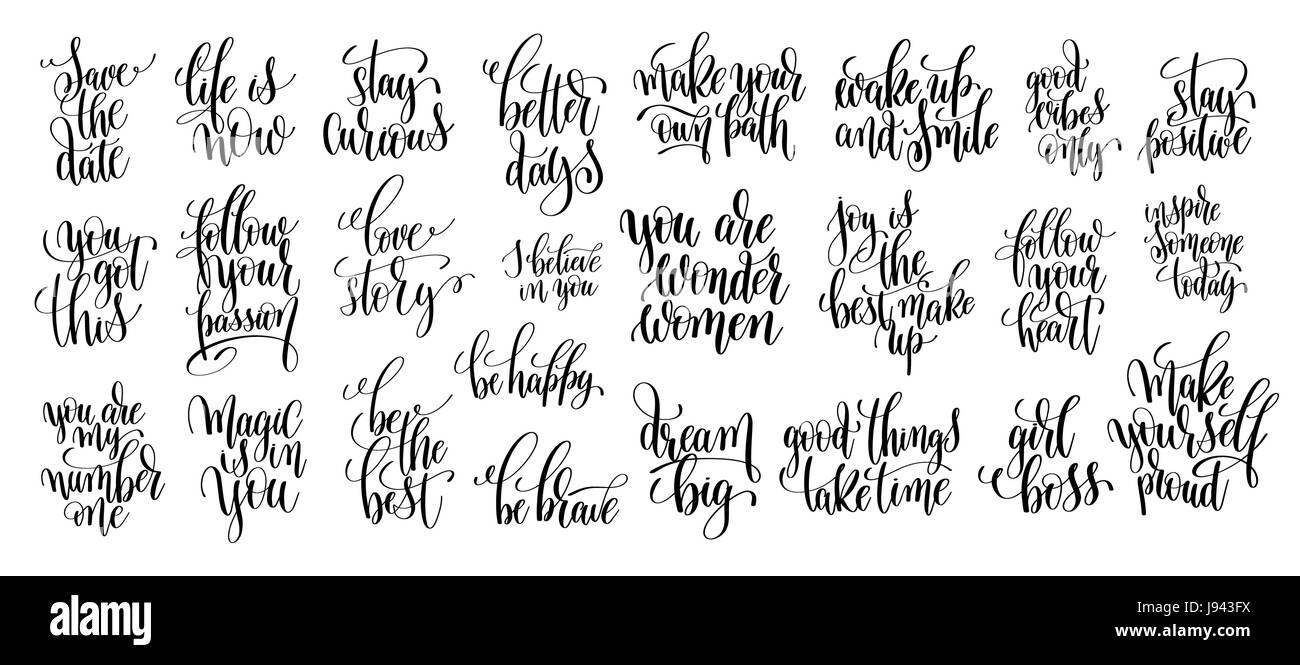 Save
the
date
life is
now
stay
curious
better
days
make your
own path
wake up
and smile
good
vibes
only
stay
positive
you
got
this
follow
your
passion
love
story
I believe
in you
you are
wonder
women
joy is
the
best make
up
follow
your
heart
inspire
someone
today
you are
my
number
one
Magic
is in
you
be
the
best
be happy
be brave
dream
big
good things
take time
girl
boss
Make
yourself
proud
alamy
Image ID: J943FX
www.alamy.com